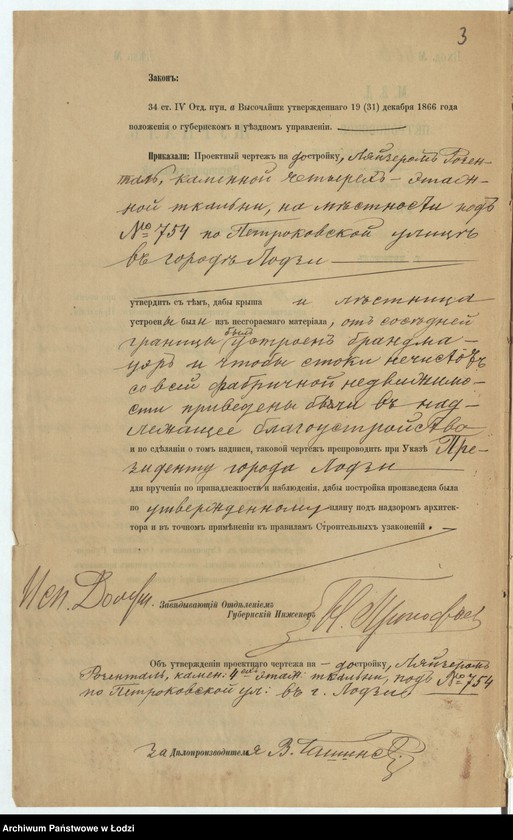 3
Законъ:
34 ст. IV Отд. пун. а Высочайше утвержденнаго 19 (31) декабря 1866 года
положенія о губернскомъ и уѣздномъ управленіи.
Приказали: Проектный чертежъ на достройку, Ляйзеромъ Розен-
таль, каменной четырехъ-этаж-
ной ткальни, на мѣстности подъ
№ 754 по Петроковской улицѣ
въ городѣ Лодзи
утвердить съ тѣмъ, дабы крыша и лѣстница
устроены были изъ несгораемаго матеріала, отъ сосѣдней
границы былъ устроенъ брандма-
уеръ и чтобы стоки нечистотъ
со всей фабричной недвижимо-
сти приведены были въ над-
лежащее благоустройство
и по сдѣланіи о томъ надписи, таковой чертежъ препроводить при Указѣ Пре-
зиденту города Лодзи
для врученія по принадлежности и наблюденія, дабы постройка произведена была
по утвержденному плану подъ надзоромъ архитек-
тора и въ точномъ примѣненіи къ правиламъ Строительныхъ узаконеній.
Исп. Долж. Завѣдывающій Отдѣленіемъ
Губернскій Инженеръ
Объ утвержденіи проектнаго чертежа на достройку, Ляйзеромъ
Розенталь, камен: 4ехъ этаж: ткальни, подъ № 754
по Петроковской ул: въ г. Лодзи
за Дѣлопроизводителя В.
Archiwum Państwowe w Łodzi